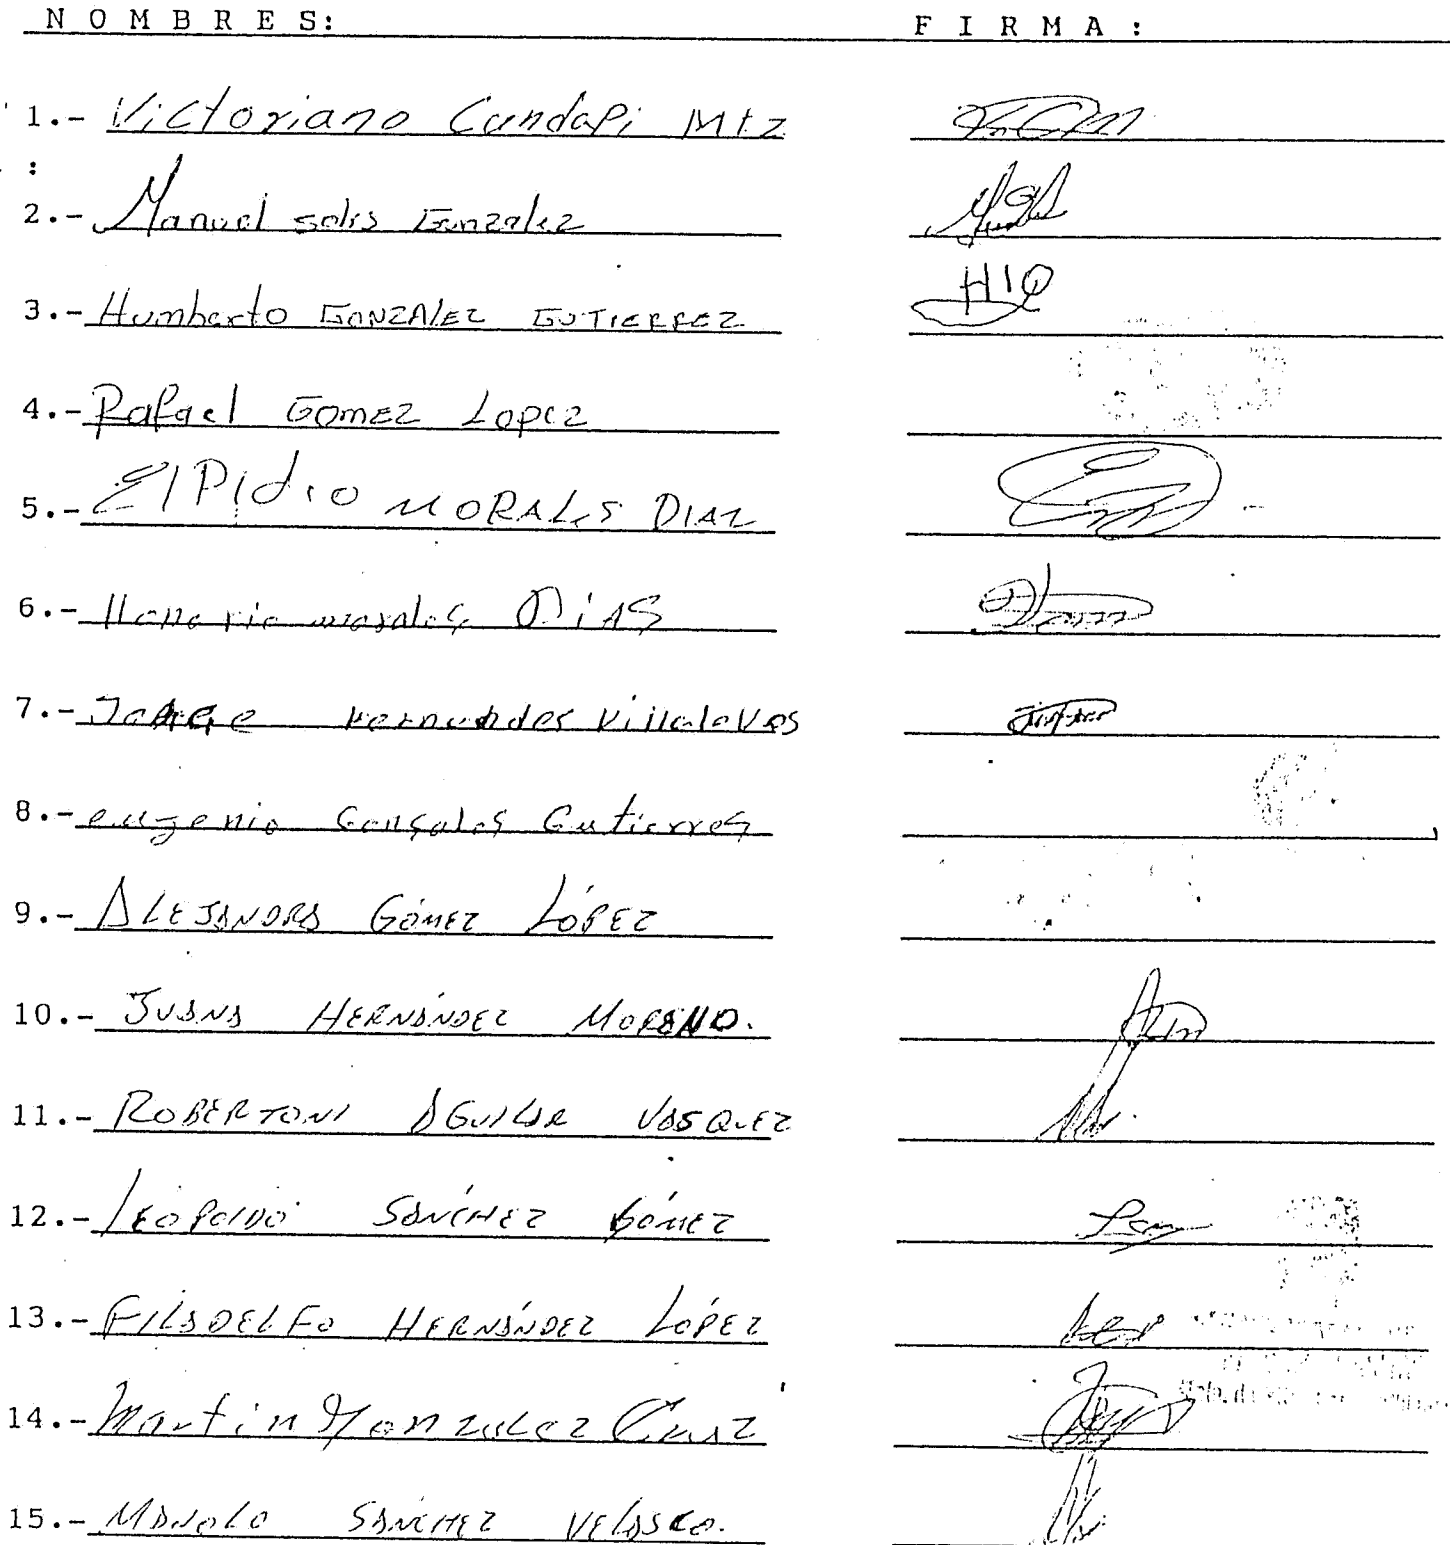 N O M B R E S: F I R M A :
1.- Victoriano Cundapi Mtz
:
2.- Manuel solis Gonzalez
3.- Humberto GONZALEZ GUTIERREZ HIQ
4.- Rafael GOMEZ Lopez
5.- ElPidio MORALES DIAZ
6.- Honorio morales DiAS
7.- JORGE Hernandes Villalevos
8.- eugenio Gonsales Gutierres
9.- ALEJANDRA GÓMEZ LÓPEZ
10.- JUANA HERNÁNDEZ MORENO.
11.- ROBERTONI AGUILAR VASQUEZ
12.- LEOPOLDO SÁNCHEZ GÓMEZ
13.- FILADELFO HERNÁNDEZ LÓPEZ
14.- Martin Gonzalez Cruz
15.- MANOLO SÁNCHEZ VELASCO.